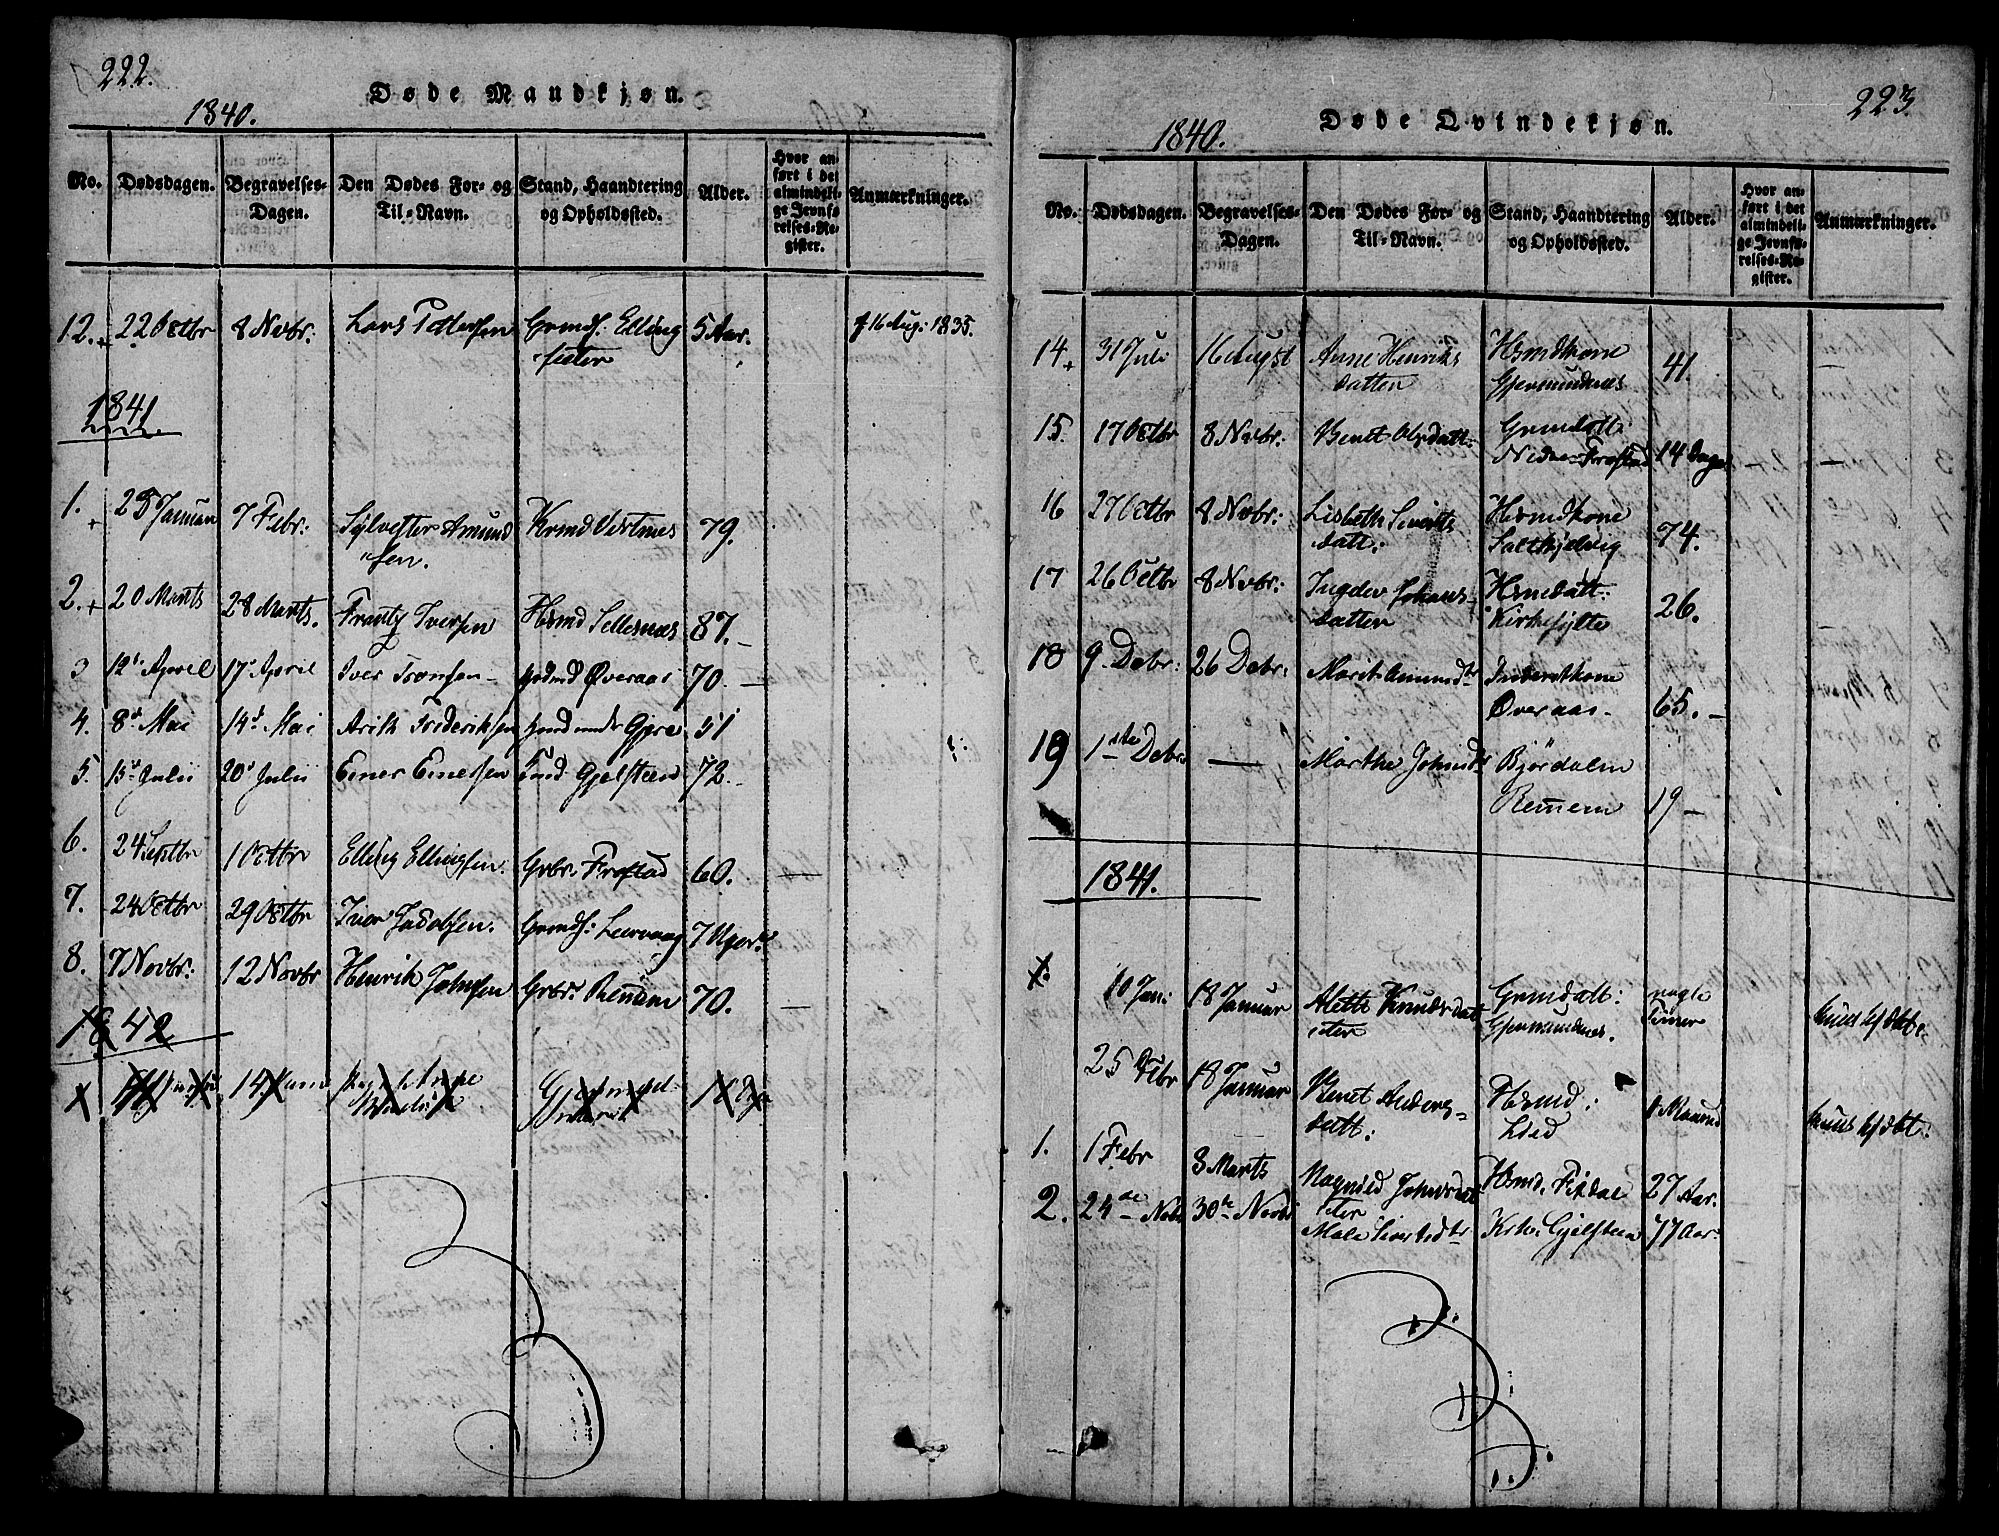 222.
Døde Mandkjøn.
1840.
No.
Dødsdagen.
Begravelses-
Dagen.
Den Dødes For- og
Til-Navn.
Stand, Haandtering
og Opholdssted.
Alder.
Hvor an-
ført i det
almindeli-
ge Jevnfø-
relses-Re-
gister.
Anmærkninger.
12. 22 Octbr 8 Novbr. Lars Pettersen Grmds: Elling 5 Aar. f 16 Aug: 1835.
sæter
1841
1. 25 Januar 7 Febr: Sylvester Amund Krmd Vestnes 79.
sen.
2. 20 Marts 28 Marts. Frantz Iversen Hsmd Sellesnæs 87.
3 12 April 17 April Iver Tronsen Øveraas 70.
4. 8de Mai 14d Mai Arik Friderikssen Gjere 51
5. 15d Julii 20d Julii Einer Einersen Gjelsteen 72.
6. 24 Septbr 1 Octbr Elling Ellingsen. Grbr. Frostad 60.
7. 24 Octbr 29 Octbr Iver Jacobsen. Grmds: Leirvaag 7 Uger
8. 7 Novbr: 12 Novbr Henrik Johnsen Grbr. Remem 70.
1842
14
223
Døde Qvindekjøn.
1840.
No.
Dødsdagen.
Begravelses-
Dagen.
Den Dødes For- og
Til-Navn.
Stand, Haandtering
og Opholdssted.
Alder.
Hvor an-
ført i det
almindeli-
ge Jevnfø-
relses-Re-
gister.
Anmærkninger.
14 31 Juli 16 August Anne Henriks Hsmdkone 41.
datter Gjermundnæs
15. 17 Octbr 8 Novbr: Beret Olsdatt: Grmdatt:
Frostad 14 Dage
16 27 Octbr 8 Novbr: Lisbeth Siverts Hsmdkone 74.
datt: Saltkjelvig
17 26 Octbr 8 Novbr: Ingeber Johans- Hsmdatt: 26.
datter Kirkesylte
18 9 Debr: 26 Debr: Marit Amundtr Inderstkone
Øveraas 65.
19 1ste Debr. — Marthe Johnsdr Bjørdalen
Remem 19
1841.
10 Jan: 18 Januar Alette Knudsdat Grmdatt: nogle
ter Gjermundnæs. Timer
25 18 Januar Beret Anders- Hsmd: Maaned
datt: Lied
1. 1 Febr 8 Marts Johnsdat Hsmd. Fixdal 27 Aar.
ter
2. 24de Novb 30te Novb Male Siverdtr Gjelsteen 77 Aar.